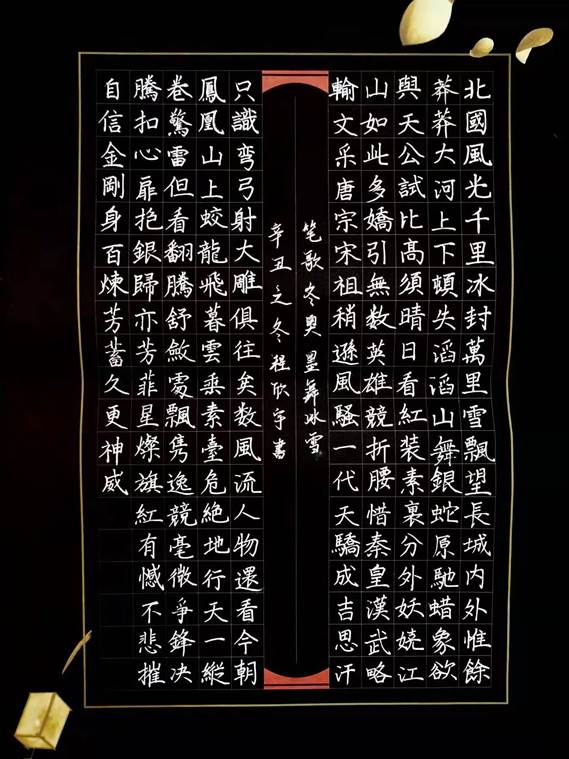 北國風光千里冰封萬里雪飄望長城内外惟餘
莽莽大河上下頓失滔滔山舞銀蛇原馳蜡象欲
與天公試比高須晴日看紅装素裏分外妖娆江
山如此多嬌引無数英雄競折腰惜秦皇漢武略
輸文采唐宗宋祖稍遜風騷一代天驕成吉思汗
笔歌冬奥墨舞冰雪
辛丑之冬程欣宇書
只識弯弓射大雕俱往矣数風流人物還看今朝
鳳凰山上蛟龍飛暮雲垂素臺危絶地行天一縱
卷驚雷但看翻騰舒斂飄隽逸競毫微爭鋒决
騰扣心扉抱銀歸亦芳菲星燦旗紅有憾不悲摧
自信金剛身百煉芳蓄久更神威